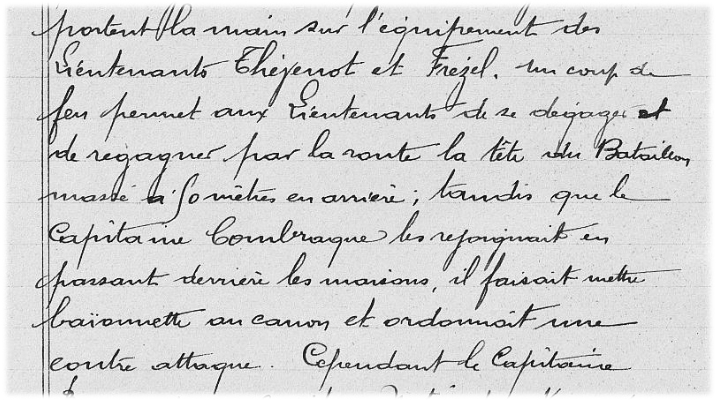 portent la main sur l'équipement des
Lieutenants Thévenot et Frézel. Un coup de
feu permet aux Lieutenants de se dégager et
de regagner par la route la tête du Bataillon
massé à 50 mètres en arrière ; tandis que le
Capitaine Combraque les rejoignait en
passant derrière les maisons, il faisait mettre
baïonnette au canon et ordonnait une
contre attaque. Cependant le Capitaine